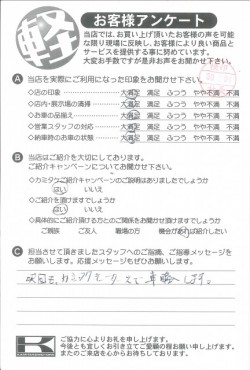 軽
お客様アンケート
当店では、お買い上げ頂いたお客様の声を可能
な限り現場に反映し、お客様により良い商品と
サービスを提供する事に努めています。
大変お手数ですが是非お声をお聞かせ下さい。
A 当店を実際にご利用になった印象をお聞かせ下さい。
◇店の印象 大満足 満足 ふつう やや不満 不満
◇店内・展示場の清掃 大満足 満足 ふつう やや不満 不満
◇お車の品揃え 大満足 満足 ふつう やや不満 不満
◇営業スタッフの対応 大満足 満足 ふつう やや不満 不満
◇納車時のお車の状態 大満足 満足 ふつう やや不満 不満
B 当店はご紹介を大切にしております。
ご紹介キャンペーンについてお聞かせ下さい。
◇カミタケご紹介キャンペーンのご説明はありましたでしょうか
はい いいえ
◇ご紹介を頂けますでしょうか
はい いいえ
◇具体的にご紹介頂ける方とのご関係をお聞かせ頂けますでしょうか
ご親族 ご友人 職場の方 機会があれば紹介したい
C 担当させて頂きましたスタッフへのご指摘、ご指導メッセージを
お願いします。応援メッセージもぜひお願いします。
次回も、カミタケモータースで車購入します。
K
ご協力に心よりお礼を申し上げます。
今後とも宜しくお引き立てご愛顧の程お願い申し上げます。
またのご来店を心からお待ちしております。